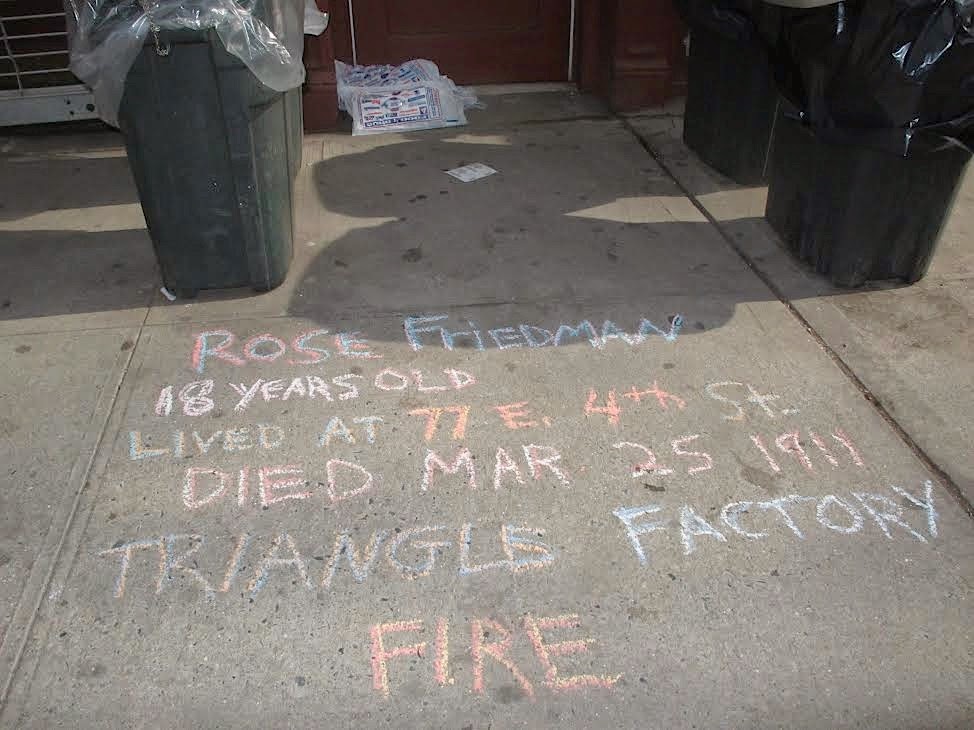 ROSE FRIEDMAN
18 YEARS OLD
LIVED AT 77 E. 4th St.
DIED MAR 25 1911
TRIANGLE FACTORY
FIRE